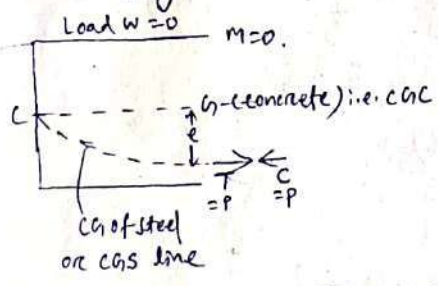 Load W=0
M=0.
C G-(concrete) i.e. CGC
e
T C
=P =P
CG of steel
or CGS line